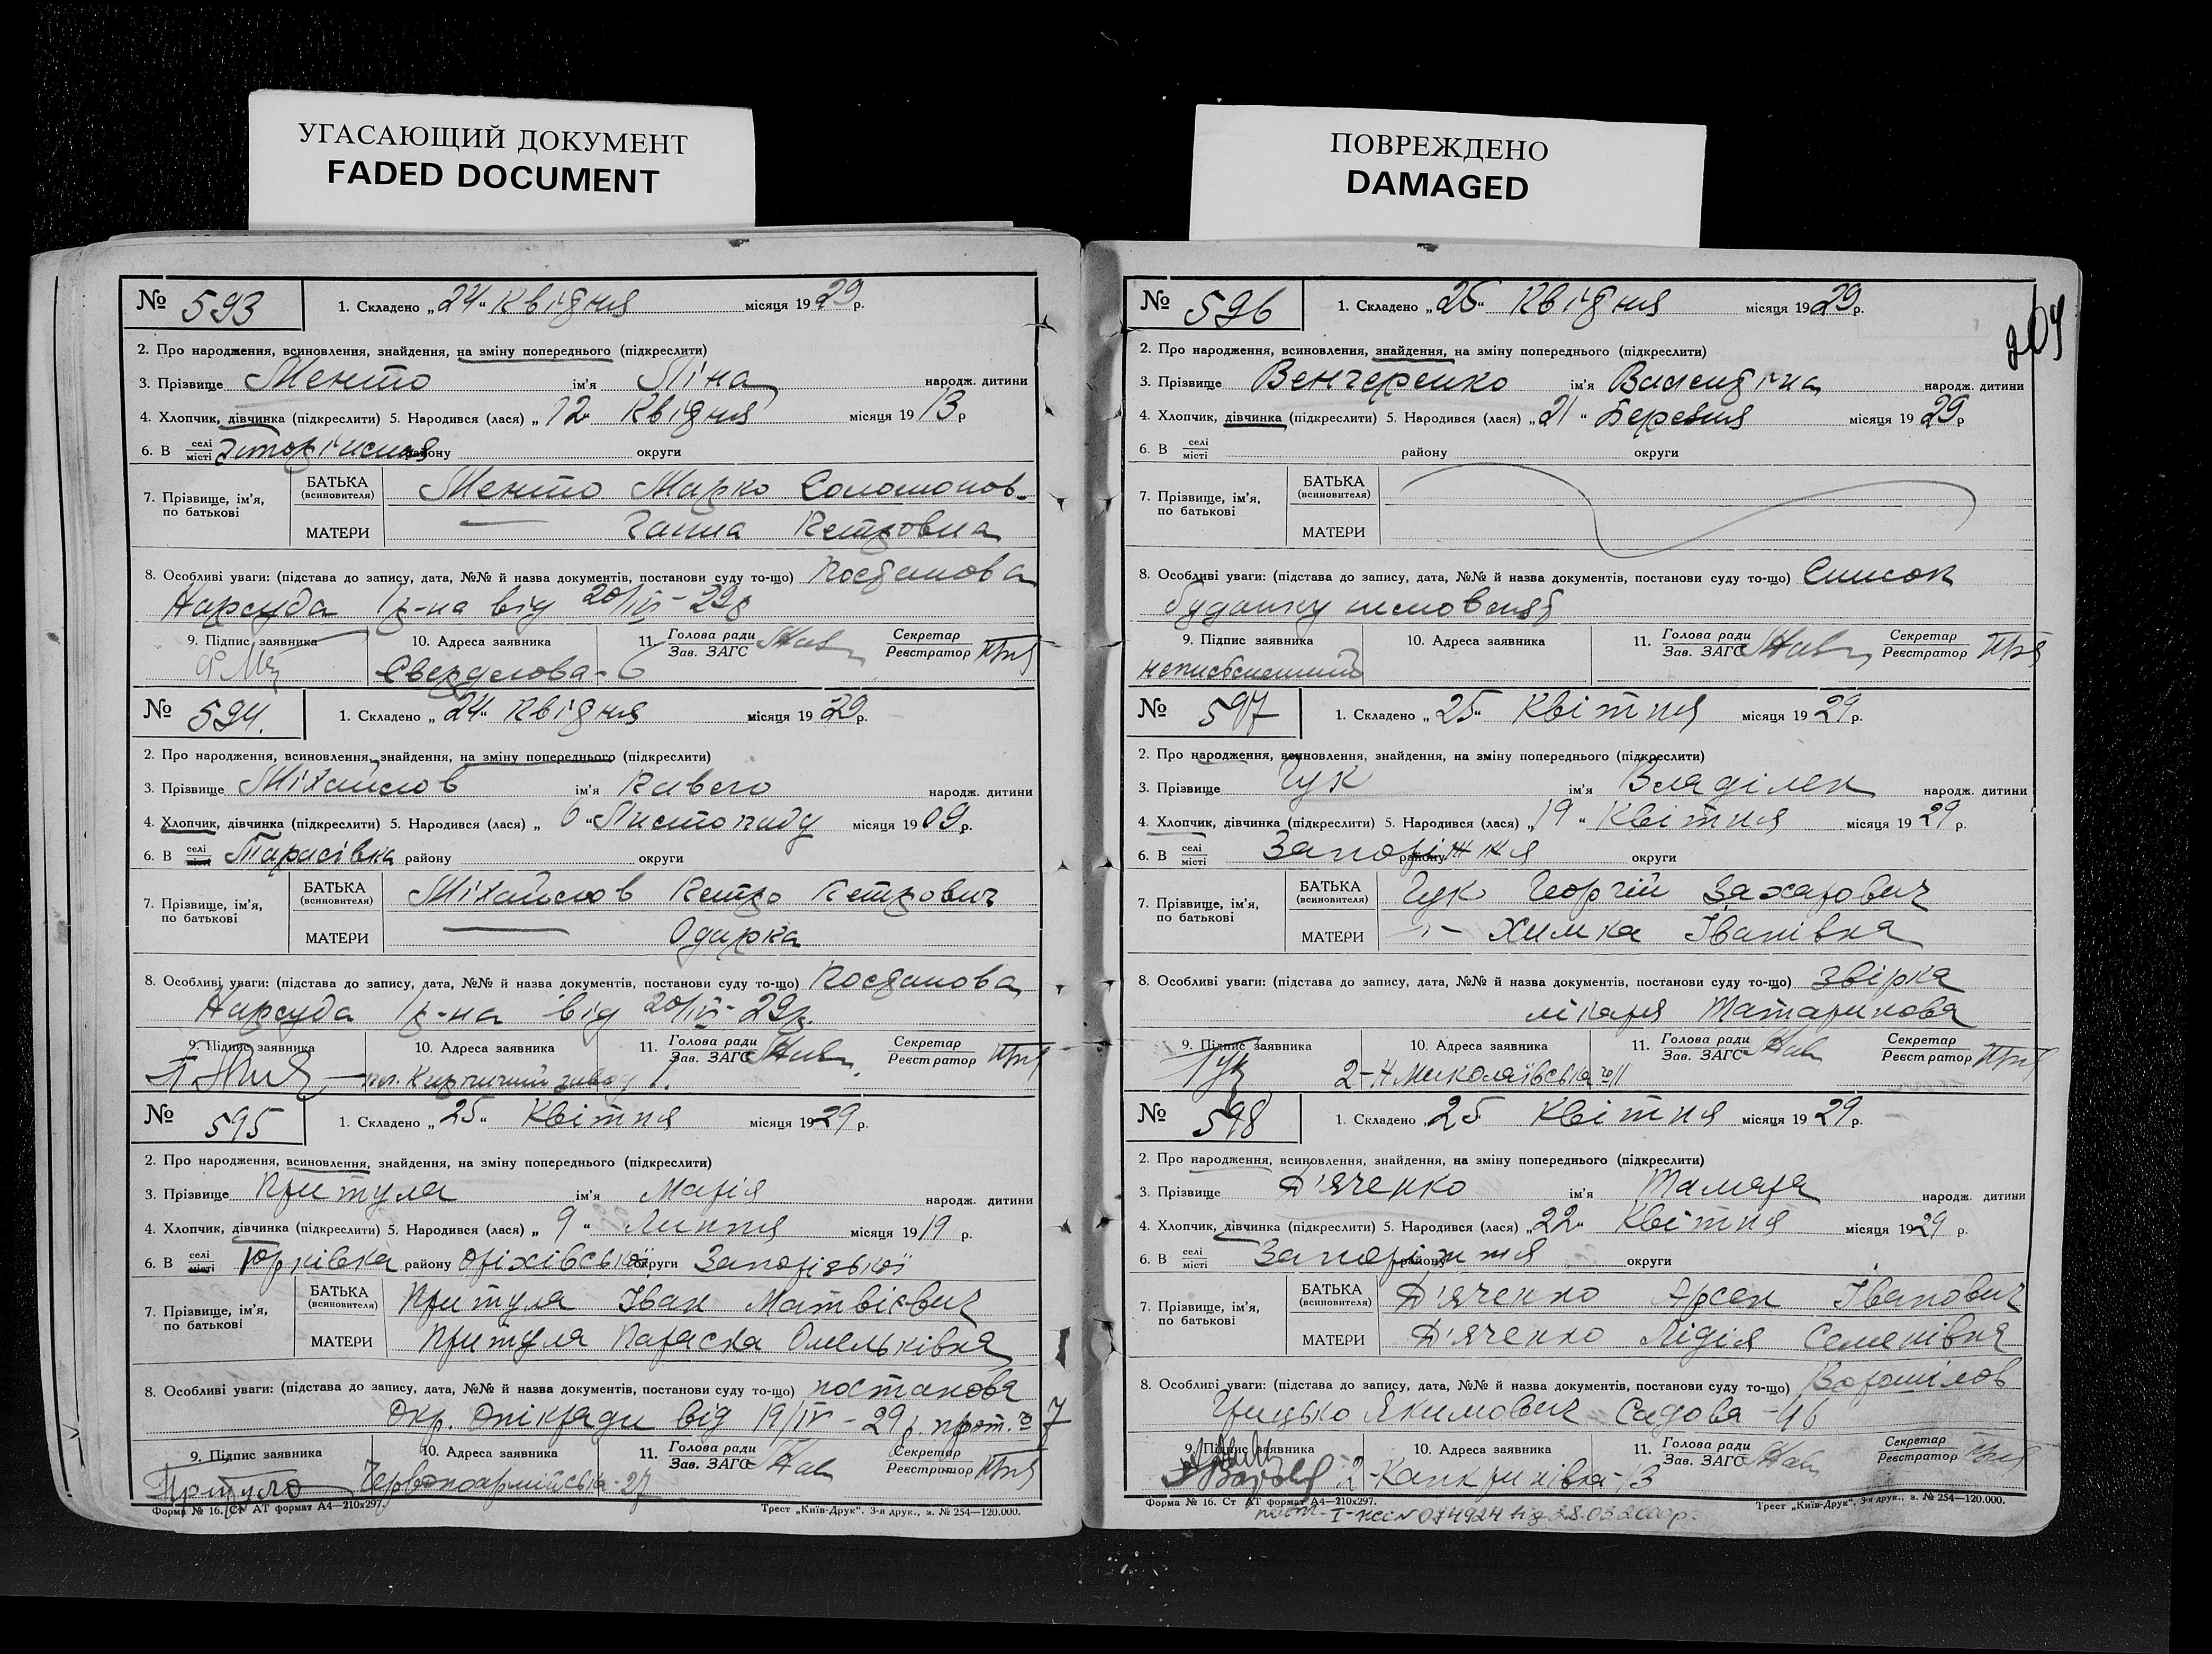 УГАСАЮЩИЙ ДОКУМЕНТ
FADED DOCUMENT
№ 593 1. Складено „24“ Квідня місяця 1929 р.
2. Про народження, всиновлення, знайдення, на зміну попереднього (підкреслити)
3. Прізвище Менто ім'я Ліна народж. дитини
4. Хлопчик, дівчинка (підкреслити) 5. Народився (лася) „12“ Квідня місяця 1913 р
6. В селі місті району округи
7. Прізвище, ім'я, по батькові БАТЬКА (всиновителя) Менто Марко Соломонов.
МАТЕРИ — Ганна Петровна
8. Особливі уваги: (підстава до запису, дата, №№ й назва документів, постанови суду то-що) Посданова
Нарсуда 1 р-на від 20/IV-29р
9. Підпис заявника 10. Адреса заявника 11. Голова ради Зав. ЗАГС Секретар Реєстратор
Свердлова - 6
№ 594. 1. Складено „24“ Квідня місяця 1929 р.
2. Про народження, всиновлення, знайдення, на зміну попереднього (підкреслити)
3. Прізвище Міхайлов ім'я Павло народж. дитини
4. Хлопчик, дівчинка (підкреслити) 5. Народився (лася) „ “ Листопаду місяця 1909 р.
6. В селі Тарасівка району округи
7. Прізвище, ім'я, по батькові БАТЬКА (всиновителя) Міхайлов Петро Петрович
МАТЕРИ — Одарка
8. Особливі уваги: (підстава до запису, дата, №№ й назва документів, постанови суду то-що) Посданова
Нарсуда 1 р-на від 20/IV-29р.
9. Підпис заявника 10. Адреса заявника 11. Голова ради Зав. ЗАГС Секретар Реєстратор
№ 595 1. Складено „25“ Квітня місяця 1929 р.
2. Про народження, всиновлення, знайдення, на зміну попереднього (підкреслити)
3. Прізвище Притула ім'я Марія народж. дитини
4. Хлопчик, дівчинка (підкреслити) 5. Народився (лася) „9“ Липня місяця 1919 р.
6. В селі місті Юрківка району Оріхівської округи Запорізької
7. Прізвище, ім'я, по батькові БАТЬКА (всиновителя) Притула Іван Матвієвич
МАТЕРИ Притула Параска Омельківна
8. Особливі уваги: (підстава до запису, дата, №№ й назва документів, постанови суду то-що) постанова
Окр. Опікради від 19/IV-29 р. прот. 7
9. Підпис заявника 10. Адреса заявника 11. Голова ради Зав. ЗАГС Секретар Реєстратор
Притула Червоноармійська - 27
Форма № 16. Ст АТ формат А4—210х297. Трест „Київ-Друк“. 3-я друк., з. № 254—120.000.
ПОВРЕЖДЕНО
DAMAGED
204
№ 596 1. Складено „25“ Квідня місяця 1929 р.
2. Про народження, всиновлення, знайдення, на зміну попереднього (підкреслити)
3. Прізвище Венчеренко ім'я Валендіна народж. дитини
4. Хлопчик, дівчинка (підкреслити) 5. Народився (лася) „21“ Березня місяця 1929 р
6. В селі місті району округи
7. Прізвище, ім'я, по батькові БАТЬКА (всиновителя)
МАТЕРИ
8. Особливі уваги: (підстава до запису, дата, №№ й назва документів, постанови суду то-що) Список
будинку немовляд
9. Підпис заявника 10. Адреса заявника 11. Голова ради Зав. ЗАГС Секретар Реєстратор
№ 597 1. Складено „25“ Квітня місяця 1929 р.
2. Про народження, всиновлення, знайдення, на зміну попереднього (підкреслити)
3. Прізвище Гук ім'я Владілен народж. дитини
4. Хлопчик, дівчинка (підкреслити) 5. Народився (лася) „19“ Квітня місяця 1929 р.
6. В селі місті Запоріжжя району округи
7. Прізвище, ім'я, по батькові БАТЬКА (всиновителя) Гук Георгій Захарович
МАТЕРИ -"- Химка Іванівна
8. Особливі уваги: (підстава до запису, дата, №№ й назва документів, постанови суду то-що) Звірка
лікаря Татаринова
9. Підпис заявника 10. Адреса заявника 11. Голова ради Зав. ЗАГС Секретар Реєстратор
Гук 2-Н Миколаївська
№ 598 1. Складено „25 Квітня місяця 1929 р.
2. Про народження, всиновлення, знайдення, на зміну попереднього (підкреслити)
3. Прізвище Д'яченко ім'я Тамара народж. дитини
4. Хлопчик, дівчинка (підкреслити) 5. Народився (лася) „22“ Квітня місяця 1929 р.
6. В селі місті Запоріжжя району округи
7. Прізвище, ім'я, по батькові БАТЬКА (всиновителя) Д'яченко Арсен Іванович
МАТЕРИ Д'яченко Лідія Семенівна
8. Особливі уваги: (підстава до запису, дата, №№ й назва документів, постанови суду то-що) Ворошілов
Грицько Якимович Садова - 46
9. Підпис заявника 10. Адреса заявника 11. Голова ради Зав. ЗАГС Секретар Реєстратор
2-Канкринівка-13
Форма № 16. Ст АТ формат А4—210х297. Трест „Київ-Друк“, 3-я друк., з. № 254—120.000.
I-ЖС № 074924 від 28.03.2000р.